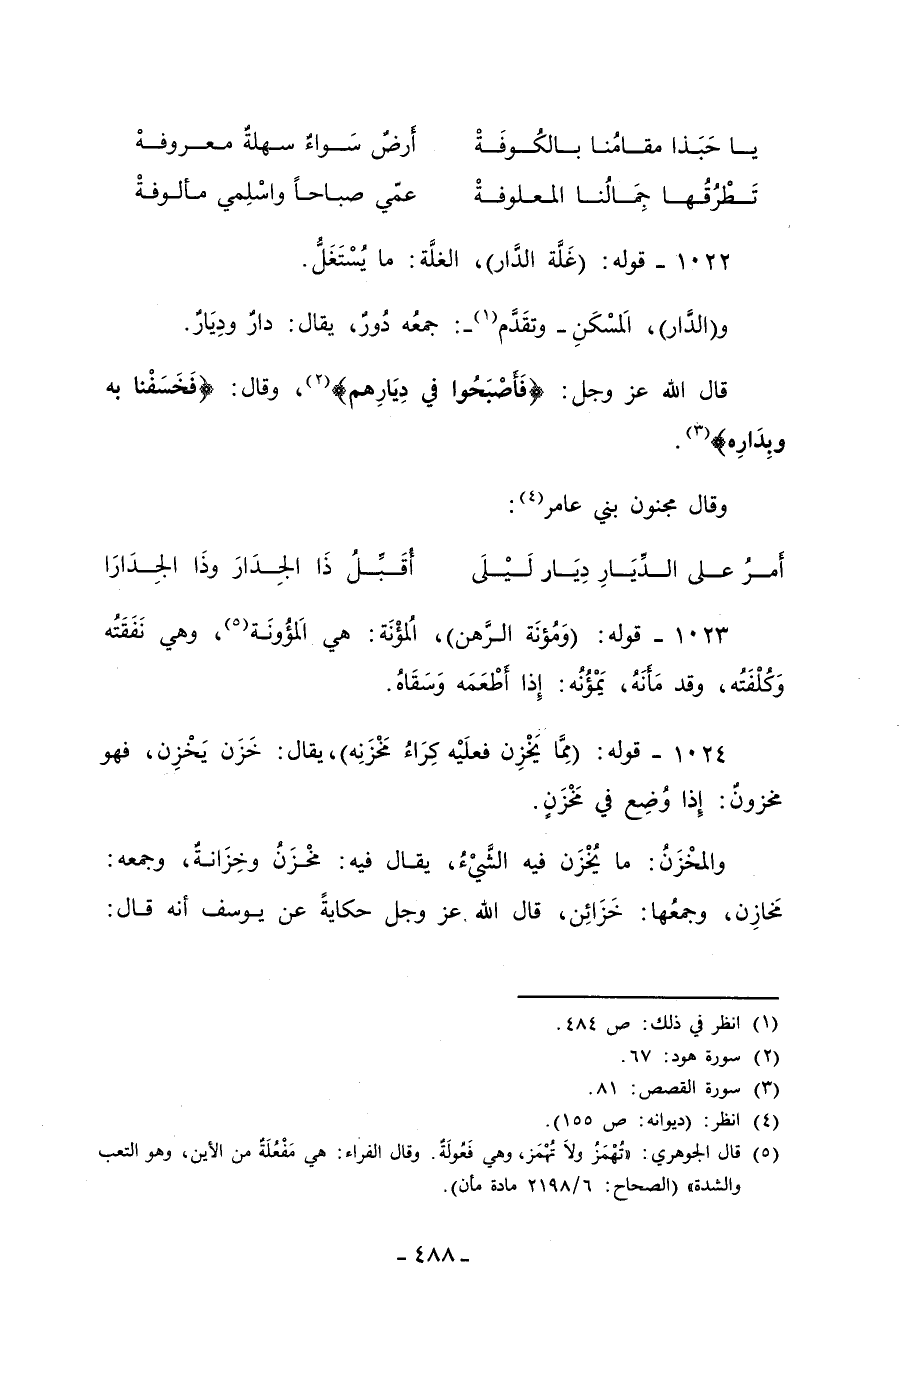 يـا حَبَـذا مقـامُنـا بـالكُـوفَـةْ أَرضٌ سَـواءٌ سـهلةٌ معـروفـةْ
تَـطْرُقُـهـا جِمَـالُنـا المعلوفـةْ عمّي صبـاحـاً واسْلِمي مـألـوفةْ
١٠٢٢ ـ قوله: (غَلَّة الدَّار)، الغلَّة: ما يُسْتَغَلُّ.
و(الدَّار)، اَلمسْكَنِ ـ وتقَدَّم(١)ـ: جمعُه دُورٌ، يقال: دارٌ ودِيَارٌ.
قال الله عز وجل: ﴿فَأَصْبَحُوا في دِيَارِهم﴾(٢)، وقال: ﴿فَخَسَفْنا به
وبِدَارِه﴾(٣).
وقال مجنون بني عامر(٤):
أَمـرُ عـلى الـدِّيَـارِ دِيَـار لَـيْـلَى أُقَـبِّـلُ ذَا الجِـدَارَ وذَا الجِـدَارَا
١٠٢٣ ـ قوله: (وَمُؤنَة الـرَّهن)، اُلمؤْنَة: هي اَلمؤُونَـة(٥)، وهي نَفَقَتُه
وَكُلْفَتُه، وقد مَأَنَهُ، يَمْؤُنُه: إِذا أَطْعَمَه وَسَقَاهُ.
١٠٢٤ ـ قوله: (مِمَّا يَخْزِن فعلَيْه كِرَاءُ مَخْزَنِه)، يقال: خَزَن يَخْزِن، فهو
مخزونٌ: إِذا وُضِع في مَخْزَنٍ.
والمخْزَنُ: ما يُخْزَن فيه الشَّيْءُ، يقـال فيه: مخْـزَنُ وخِزَانـةٌ، وجمعه:
مَخازِن، وجمعُها: خَزَائِن، قال الله عز وجل حكايةً عن يـوسف أنه قـال:
(١) انظر في ذلك: ص ٤٨٤.
(٢) سورة هود: ٦٧.
(٣) سورة القصص: ٨١.
(٤) انظر: (ديوانه: ص ١٥٥).
(٥) قال الجوهري: «تُهْمَزُ ولاَ تُهْمَز، وهي فَعُولَةٌ. وقال الفراء: هي مَفْعُلَةٌ من الأين، وهو التعب
والشدة» (الصحاح: ٢١٩٨/٦ مادة مأن).
ـ ٤٨٨ ـ